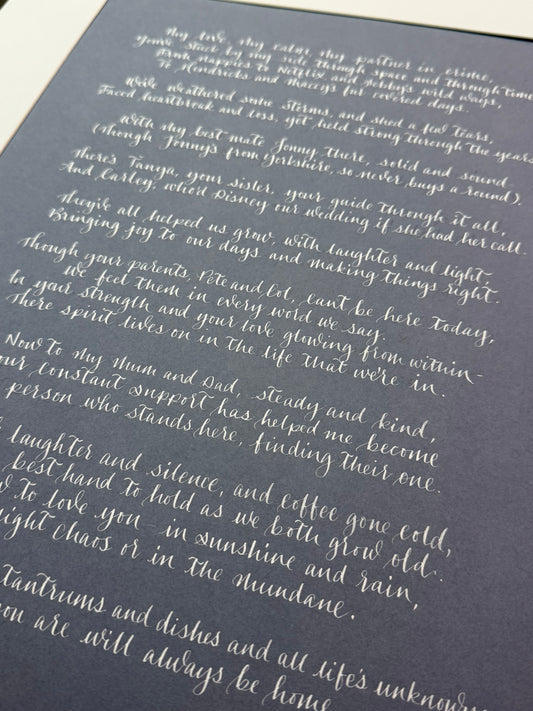 My love, my calm, my partner in crime,
You've stuck by my side through space and through time
From nappies to Netflix and Herby's wild ways,
To Hendricks and Maccy's fur covered days.
We've weathered some storms, and shed a few tears,
Faced heartbreak and loss, yet held strong through the years
With my best mate Jonny there, solid and sound
(Though Jonny's from Yorkshire, so never buys a round).
There's Tanya, your sister, your guide through it all,
And Carley, who'd Disney our wedding if she had her call.
They've all helped us grow, with laughter and light,
Bringing joy to our days and making things right.
Though your parents, Pete and Lol, can't be here today,
We feel them in every word we say.
In your strength and your love glowing from within-
There spirit lives on in the life that we're in.
Now to my Mum and Dad, steady and kind,
our constant support has helped me become
person who stands here, finding their one.
laughter and silence, and coffee gone cold,
best hand to hold as we both grow old.
to love you in sunshine and rain,
chaos or in the mundane.
tantrums and dishes and all life's
you are will always be home